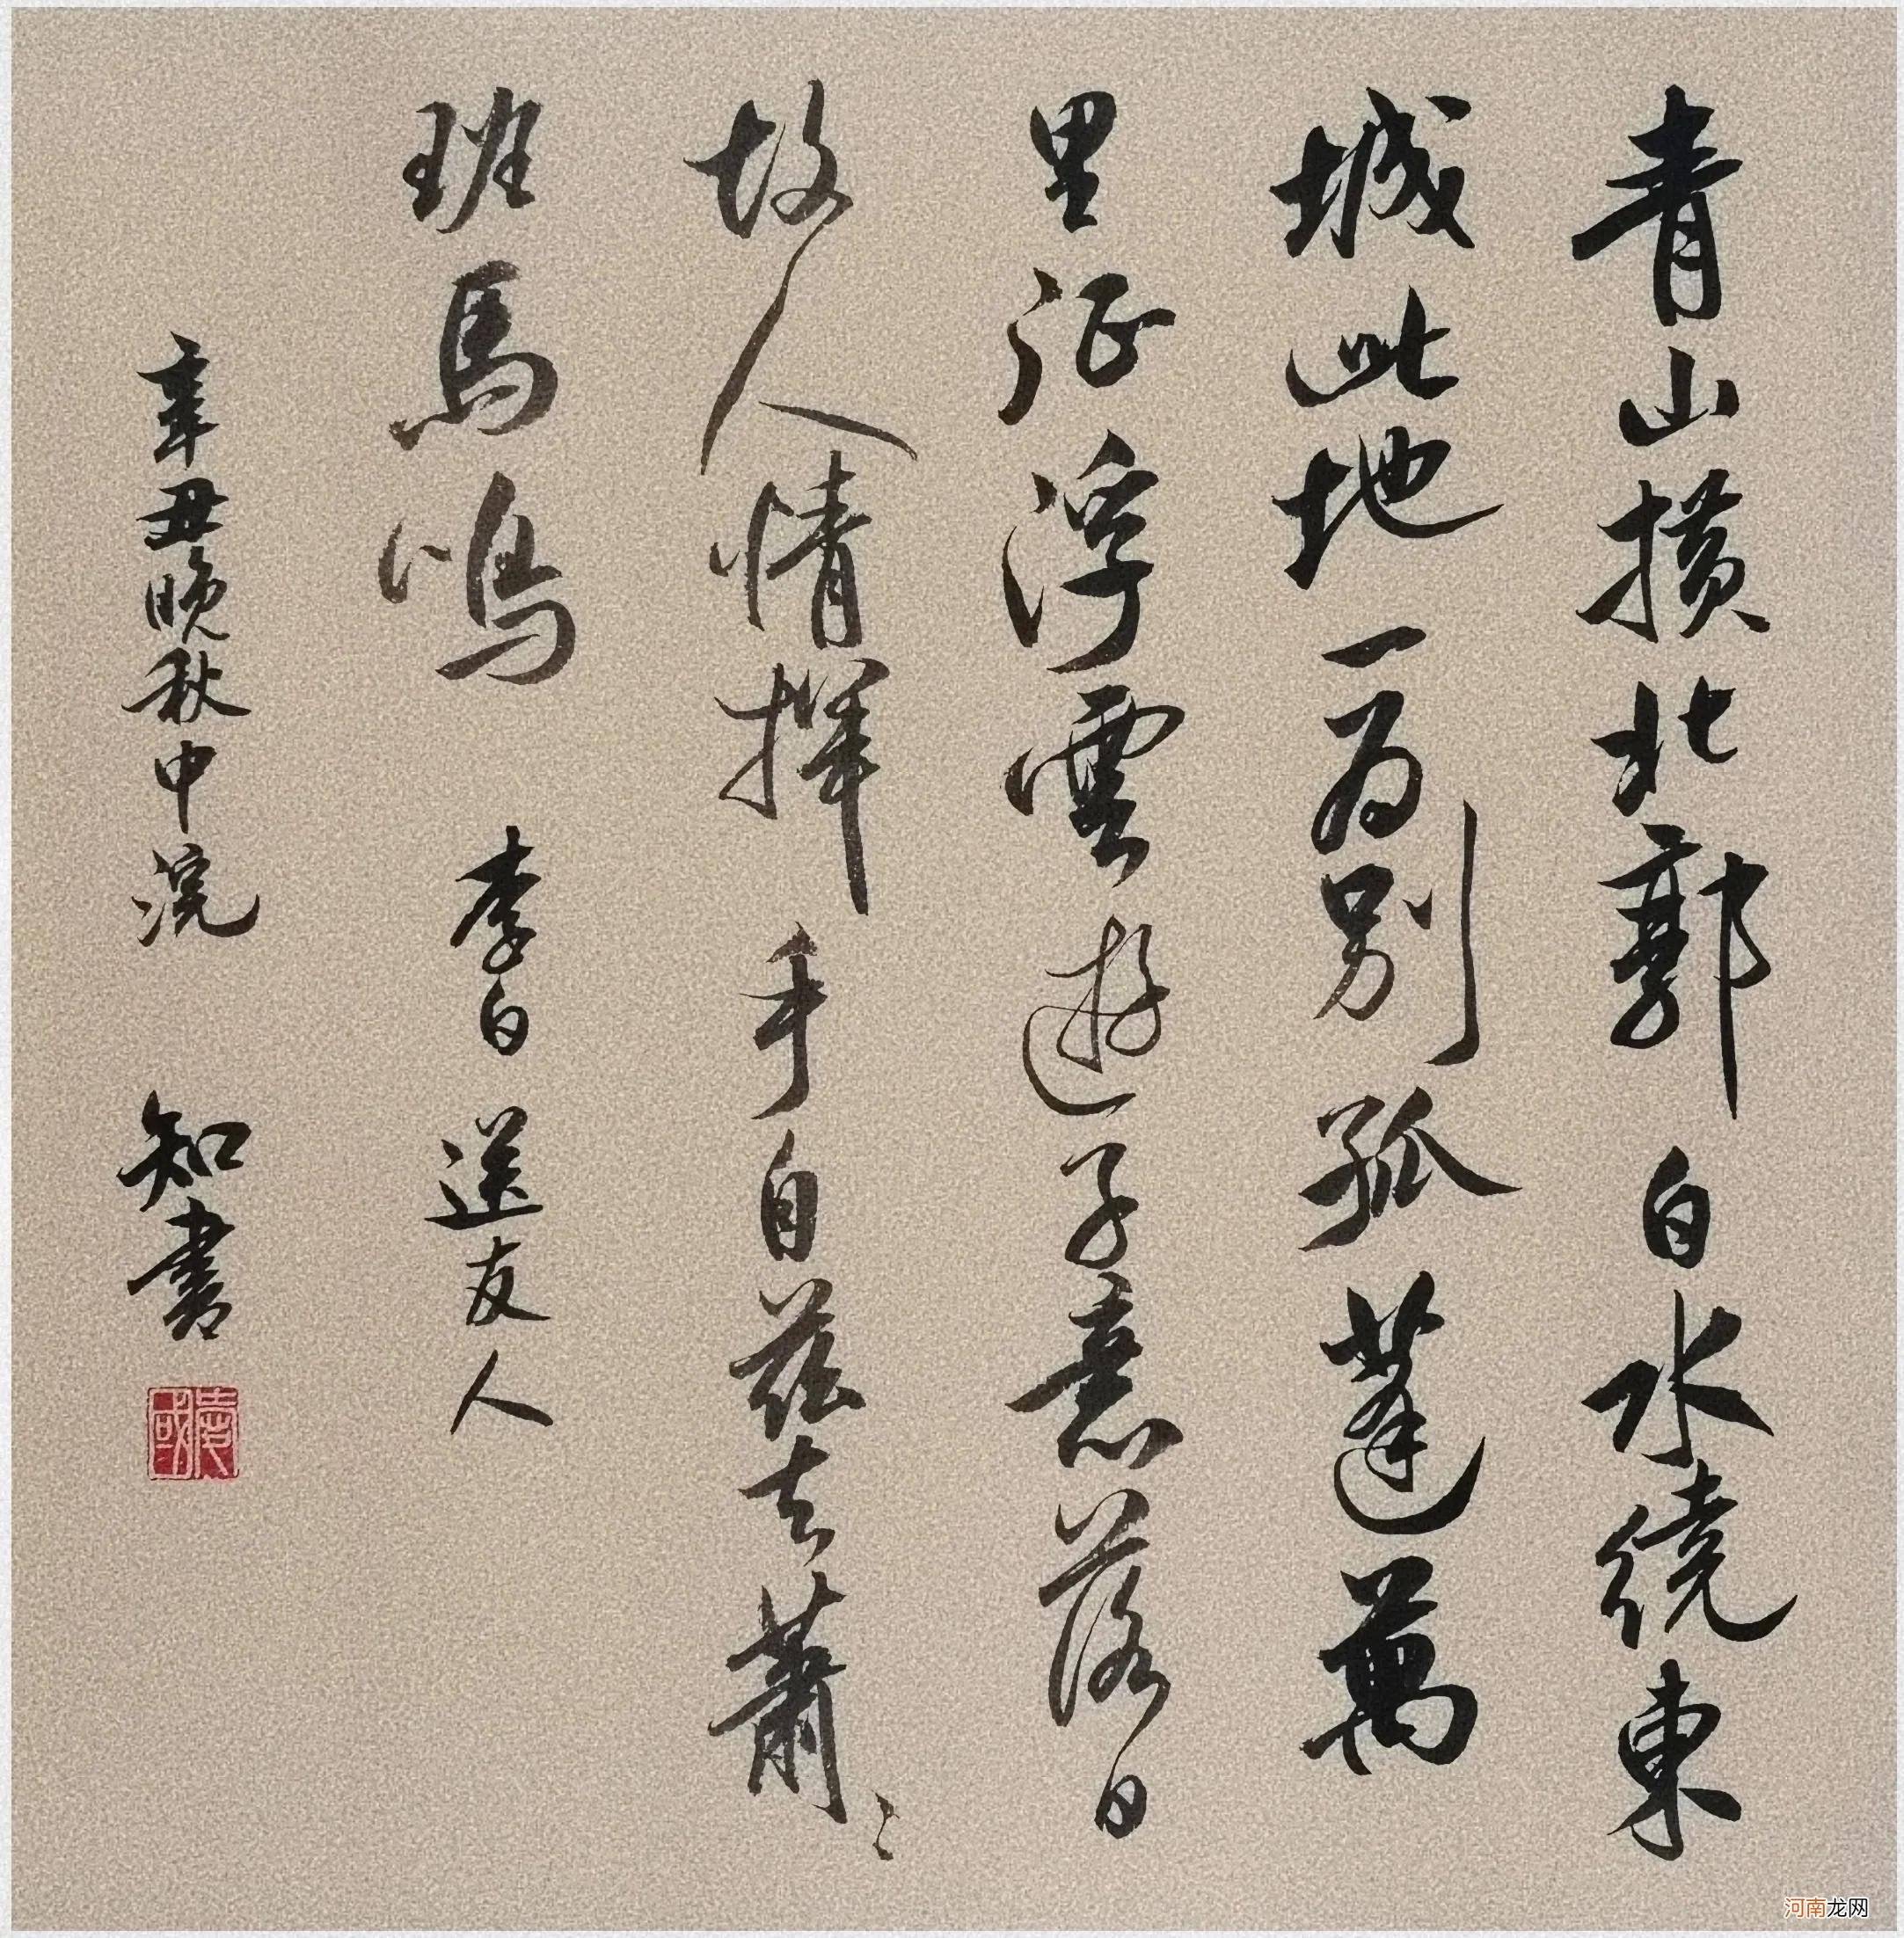 青山横北郭白水繞東
城此地一為別孤蓬萬
里征浮雲遊子意落日
故人情揮手自茲去蕭〻
班馬鳴 李白 送友人
辛丑晚秋中浣 知書
河南龙网